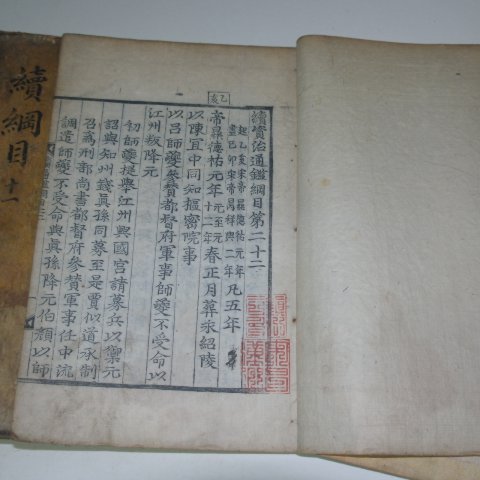 續綱目 十一
續資治通鑑綱目第二十二
起乙亥宋帝㬎德祐元年
盡己卯宋帝昺祥興二年
凡五年
乙亥
帝㬎德祐元年
元至元
十二年
春正月葬永紹陵
以陳宜中同知樞密院事
以呂師夔參贊都督府軍事師夔不受命以
江州叛降元
初師夔提舉江州興國宮請募兵以禦元
詔與知州錢眞孫同募至是賈似道承制
召爲刑部尚書都督府參贊軍事任中流
調遣師夔不受命與眞孫降元伯顏以師